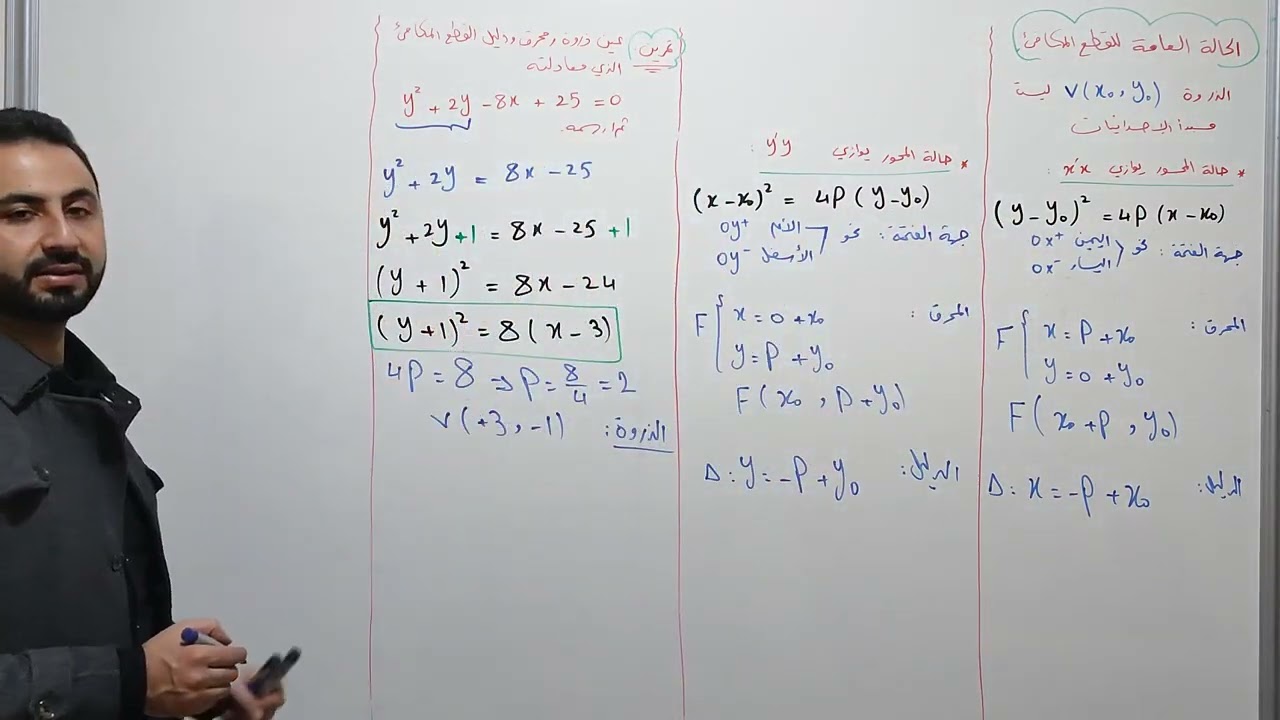 الحالة العامة للقطع المكافئ:
الذروة V(x₀, y₀) ليست
مبدأ الإحداثيات
* حالة المحور يوازي x'x :
(y - y₀)² = 4P (x - x₀)
جهة الفتحة: نحو اليمين ox⁺
اليسار ox⁻
المحرق: F { x = P + x₀
y = 0 + y₀
F(x₀ + P, y₀)
الدليل: Δ: x = -P + x₀
* حالة المحور يوازي y'y :
(x - x₀)² = 4P (y - y₀)
جهة الفتحة: نحو oy⁺
الأسفل oy⁻
المحرق: F { x = 0 + x₀
y = P + y₀
F(x₀, P + y₀)
الدليل: Δ: y = -P + y₀
تمرين: عين ذروة ومحرق ودليل القطع المكافئ
الذي معادلته
y² + 2y - 8x + 25 = 0
ثم ارسمه.
y² + 2y = 8x - 25
y² + 2y + 1 = 8x - 25 + 1
(y + 1)² = 8x - 24
(y + 1)² = 8(x - 3)
4P = 8 ⇒ P = 8/4 = 2
الذروة: V(+3, -1)